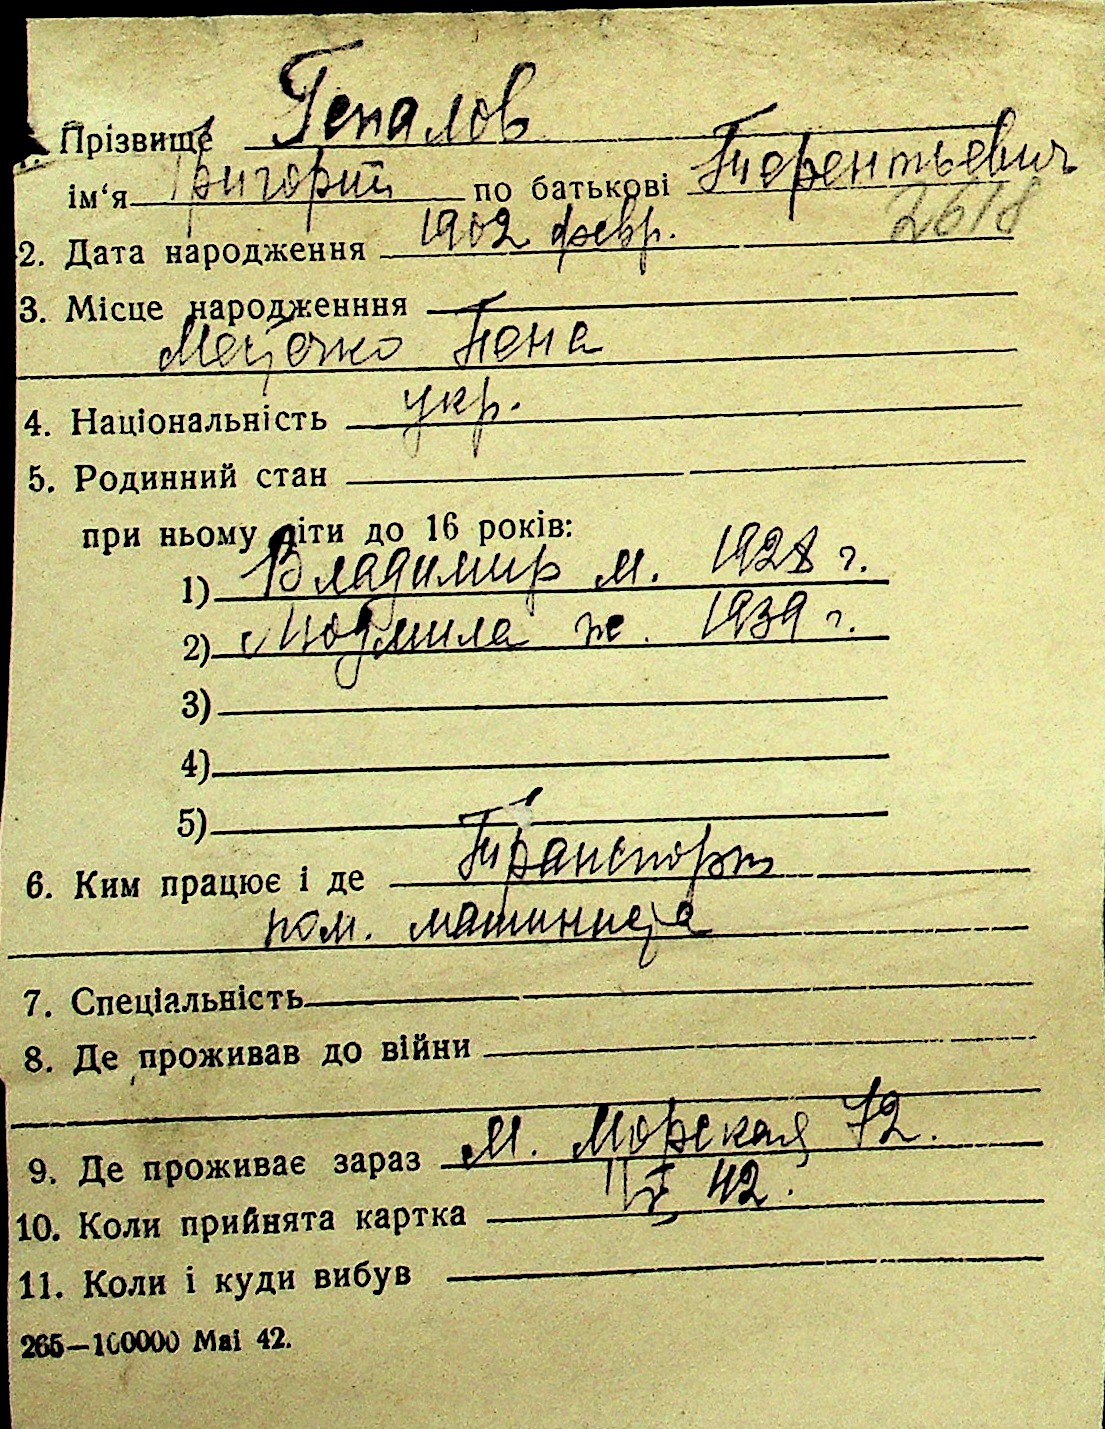 1. Прізвище Гепалов
ім‘я Григорий по батькові Терентьевич
2618
2. Дата народження 1902 февр.
3. Місце народженння
Местечко Пена
4. Національність укр.
5. Родинний стан
при ньому діти до 16 років:
1) Владимир м. 1928 г.
2) Людмила ж. 1939 г.
3)
4)
5)
6. Ким працює і де Транспорт
пом. машиниста
7. Спеціальність
8. Де проживав до війни
9. Де проживає зараз М. Морская 72.
10. Коли прийнята картка 42.
11. Коли і куди вибув
265—100000 Mai 42.